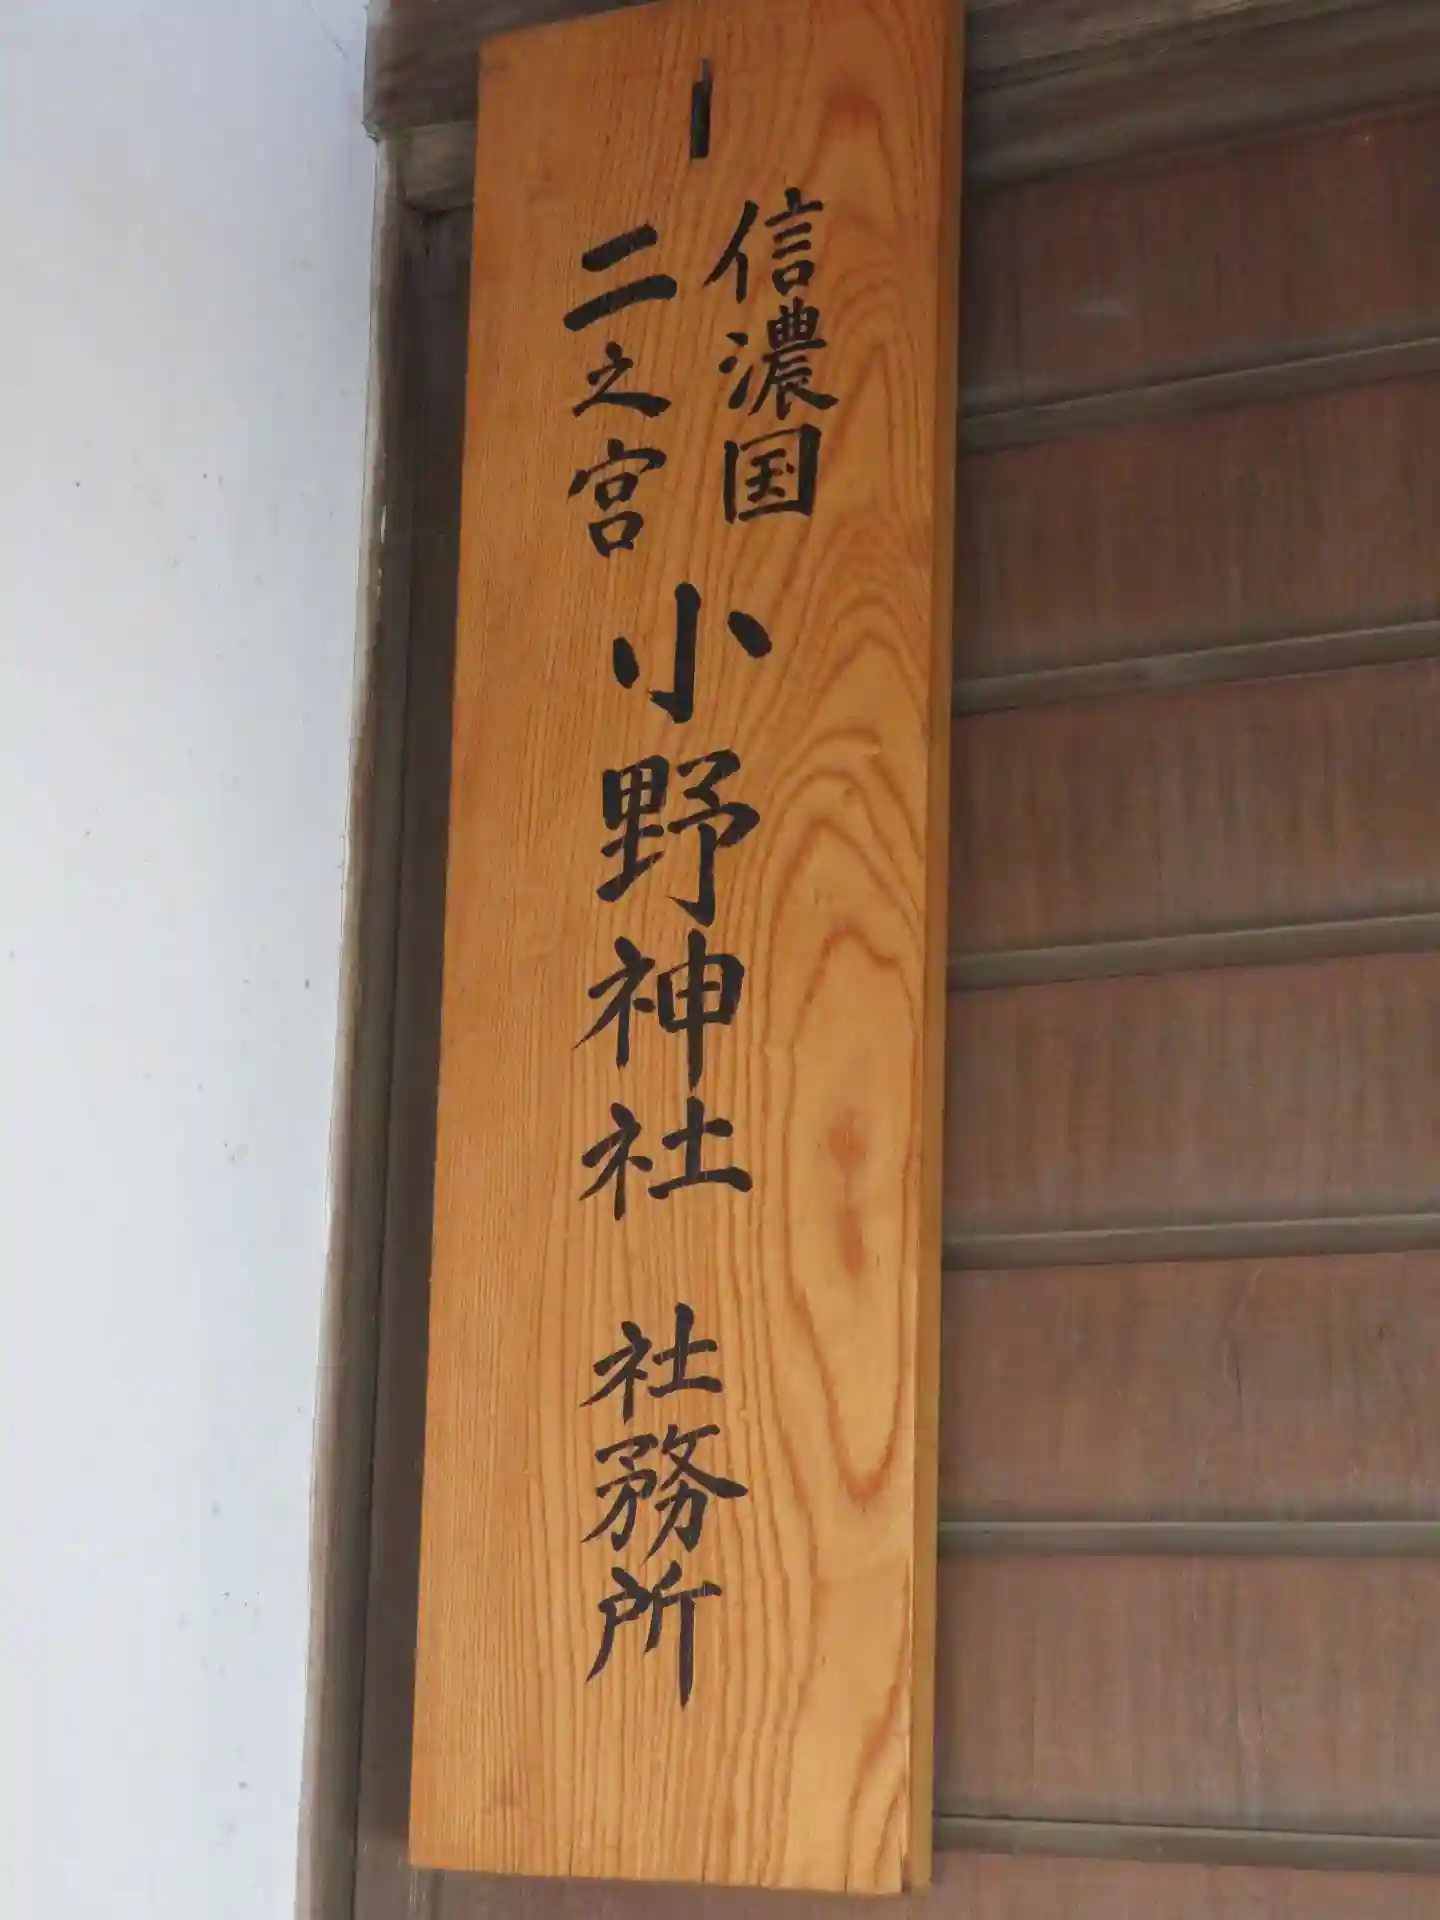 信濃国
二之宮
小野神社 社務所